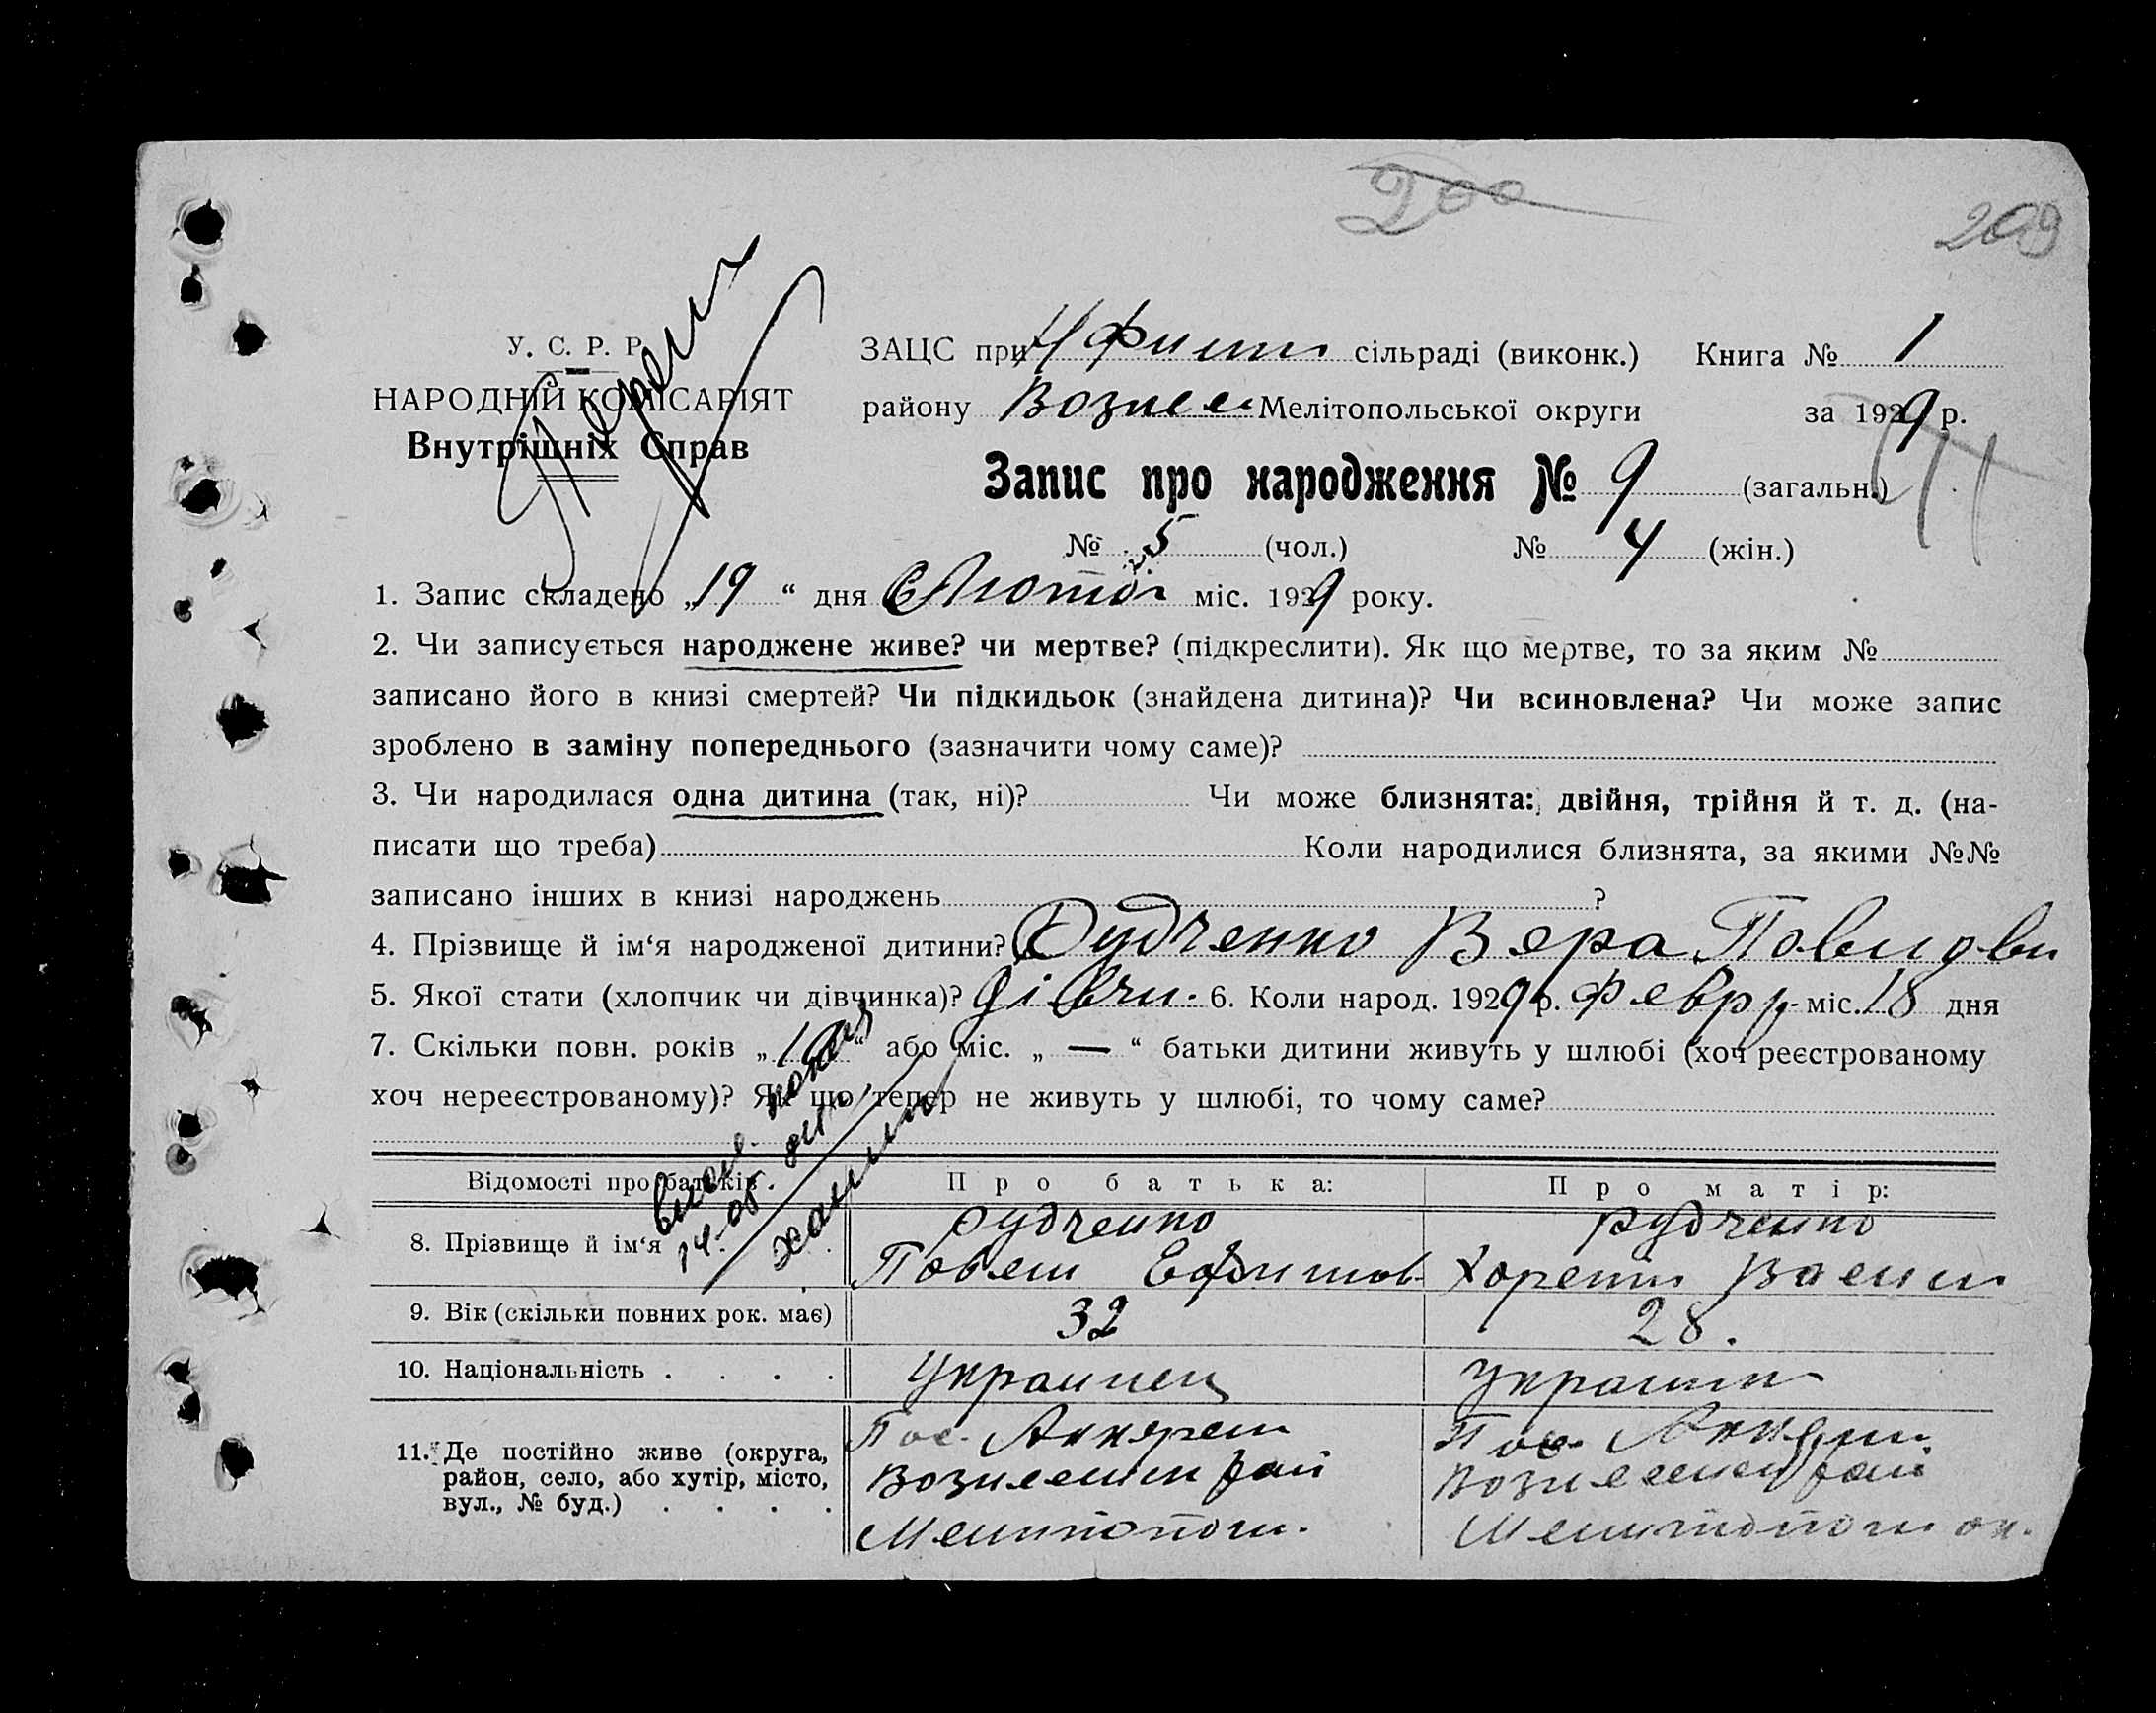 200
209
У. С. Р. Р.
НАРОДНІЙ КОМІСАРІЯТ
Внутрішніх Справ
ЗАЦС при сільраді (виконк.) Книга № 1
району Вознес Мелітопольської округи за 1929 р.
Запис про народження № 9 (загальн.)
№ 5 (чол.) № 4 (жін.)
1. Запис складено „19“ дня Лютог міс. 1929 року.
2. Чи записується народжене живе? чи мертве? (підкреслити). Як що мертве, то за яким №
записано його в книзі смертей? Чи підкидьок (знайдена дитина)? Чи всиновлена? Чи може запис
зроблено в заміну попереднього (зазначити чому саме)?
3. Чи народилася одна дитина (так, ні)? Чи може близнята: двійня, трійня й т. д. (на-
писати що треба) Коли народилися близнята, за якими №№
записано інших в книзі народжень ?
4. Прізвище й ім‘я народженої дитини? Рудченко Вера
5. Якої стати (хлопчик чи дівчинка)? дівчи. 6. Коли народ. 1929 р. Февр міс. 18 дня
7. Скільки повн. років „ “ або міс. „ — “ батьки дитини живуть у шлюбі (хоч реєстрованому
хоч нереєстрованому)? Як що тепер не живуть у шлюбі, то чому саме?
Відомості про батьків. Про батька: Про матір:
8. Прізвище й ім‘я Рудченко Рудченко
Павел Ефимов
9. Вік (скільки повних рок. має) 32 28.
10. Національність . . . . Украинец Украин
11. Де постійно живе (округа, Пос.
район, село, або хутір, місто, рай рай
вул., № буд.) . . . . Мелитопол. Мелитопол ок.